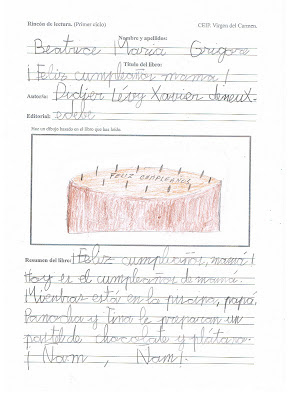 Rincón de lectura. (Primer ciclo) CEIP. Virgen del Carmen.
Nombre y apellidos:
Beatrice María Grigore
Título del libro:
¡Feliz cumpleaños mamá!
Autor/a: Didier Lévy Xavier deneux.
Editorial: edebé
Haz un dibujo basado en el libro que has leído.
FELIZ CUMPLEAÑOS
Resumen del libro: ¡Feliz cumpleaños, mamá!
Hoy es el cumpleaños de mamá.
Mientras está en la piscina, papá,
y Tina le preparan un
pastel de chocolate y plátano.
¡Ñam, Ñam!.